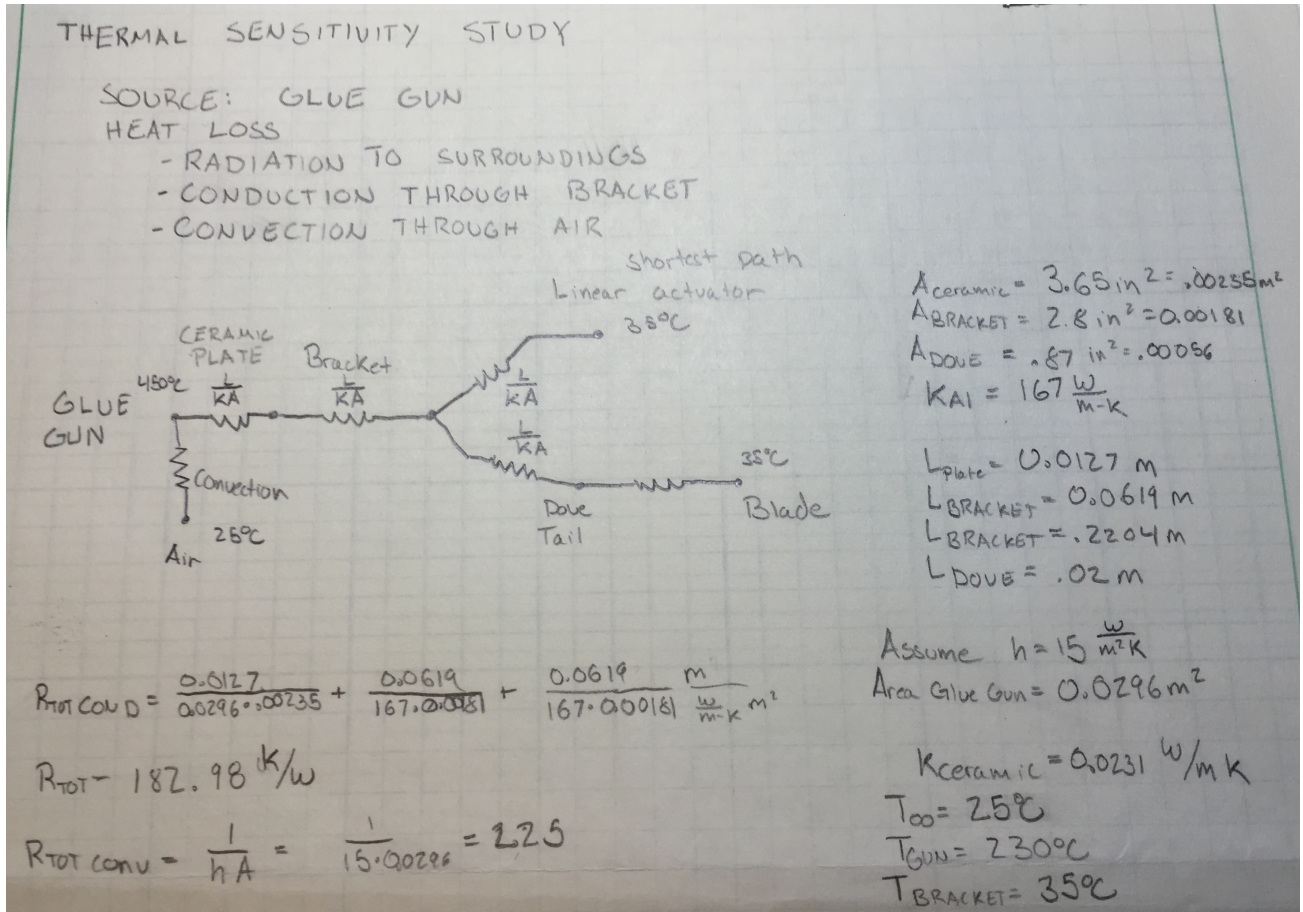 THERMAL SENSITIVITY STUDY
SOURCE: GLUE GUN
HEAT LOSS
- RADIATION TO SURROUNDINGS
- CONDUCTION THROUGH BRACKET
- CONVECTION THROUGH AIR
shortest path
Linear actuator
35°C
CERAMIC
PLATE
Bracket
450°C
L/KA
L/KA
L/KA
L/KA
GLUE
GUN
Convection
25°C
Air
Dove
Tail
35°C
Blade
A ceramic = 3.65 in² = .00235 m²
A BRACKET = 2.8 in² = 0.00181
A DOVE = .87 in² = .00056
K Al = 167 W/m-K
L plate = 0.0127 m
L BRACKET = 0.0619 m
L BRACKET = .2204 m
L DOVE = .02 m
Assume h = 15 W/m²K
Area Glue Gun = 0.0296 m²
K ceramic = 0.0231 W/mK
T∞ = 25°C
T GUN = 230°C
T BRACKET = 35°C
R TOT COND = 0.0127/0.0296·.00235 + 0.0619/167·0.00181 + 0.0619/167·0.00181 m/W/m-K m²
R TOT - 182.98 K/W
R TOT CONV = 1/hA = 1/15·0.0296 = 2.25